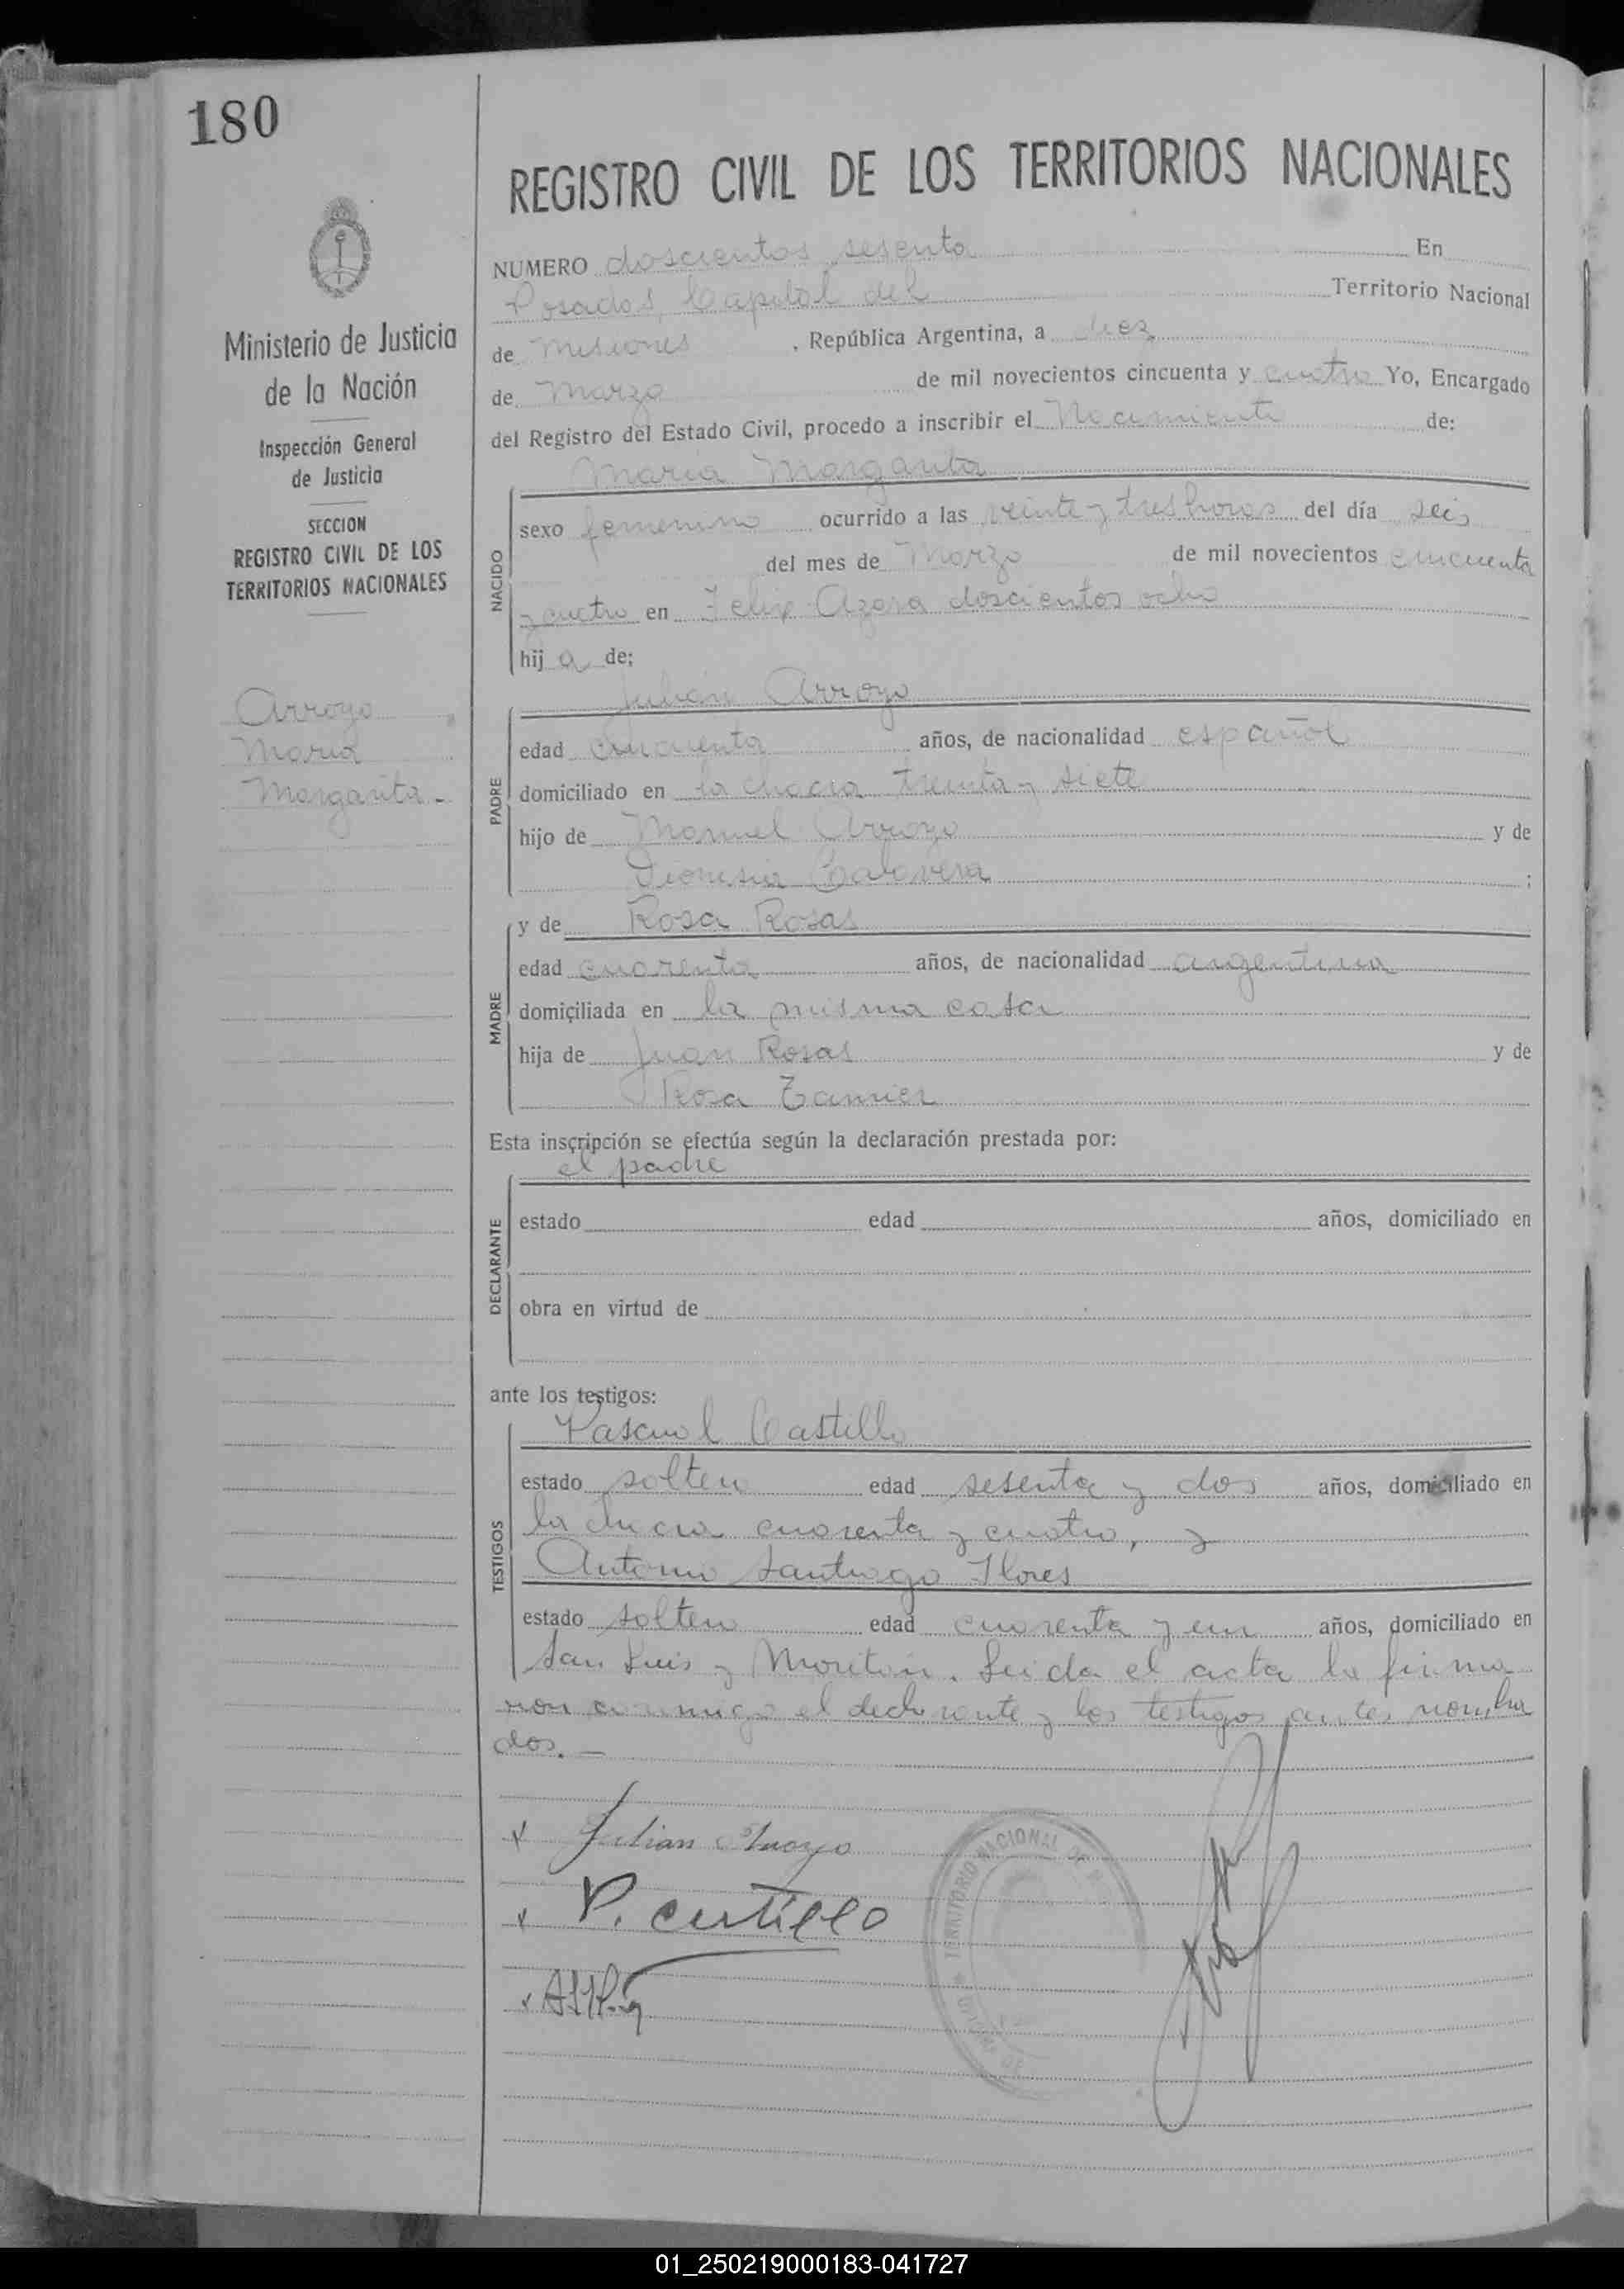 180
REGISTRO CIVIL DE LOS TERRITORIOS NACIONALES
NUMERO doscientos sesenta En
Posadas, Capital del Territorio Nacional
de Misiones, República Argentina, a diez
de Marzo de mil novecientos cincuenta y cuatro Yo, Encargado
del Registro del Estado Civil, procedo a inscribir el Nacimiento de:
Maria Margarita
NACIDO
sexo femenino ocurrido a las veinte y tres horas del día seis
del mes de Marzo de mil novecientos cincuenta
y cuatro en Felix Azara doscientos ocho
hij a de:
Julian Arroyo
PADRE
edad cincuenta años, de nacionalidad español
domiciliado en la chacra treinta y siete
hijo de Manuel Arroyo y de
Dionisia Calavera;
MADRE
y de Rosa Rosas
edad cuarenta años, de nacionalidad argentina
domiciliada en la misma casa
hija de Juan Rosas y de
Rosa
Esta inscripción se efectúa según la declaración prestada por:
el padre
DECLARANTE
estado edad años, domiciliado en
obra en virtud de
ante los testigos:
Pascual Castillo
TESTIGOS
estado soltero edad sesenta y dos años, domiciliado en
la chacra cuarenta y cuatro, y
Antonio Santiago Flores
estado soltero edad cuarenta y un años, domiciliado en
San Luis y Moritán. Leida el acta la firma
ron conmigo el declarante y los testigos antes nombra
dos. —
Julian Arroyo
P. castillo
TERRITORIO NACIONAL DE
Ministerio de Justicia
de la Nación
Inspección General
de Justicia
SECCION
REGISTRO CIVIL DE LOS
TERRITORIOS NACIONALES
Arroyo
Maria
Margarita -
01_250219000183-041727